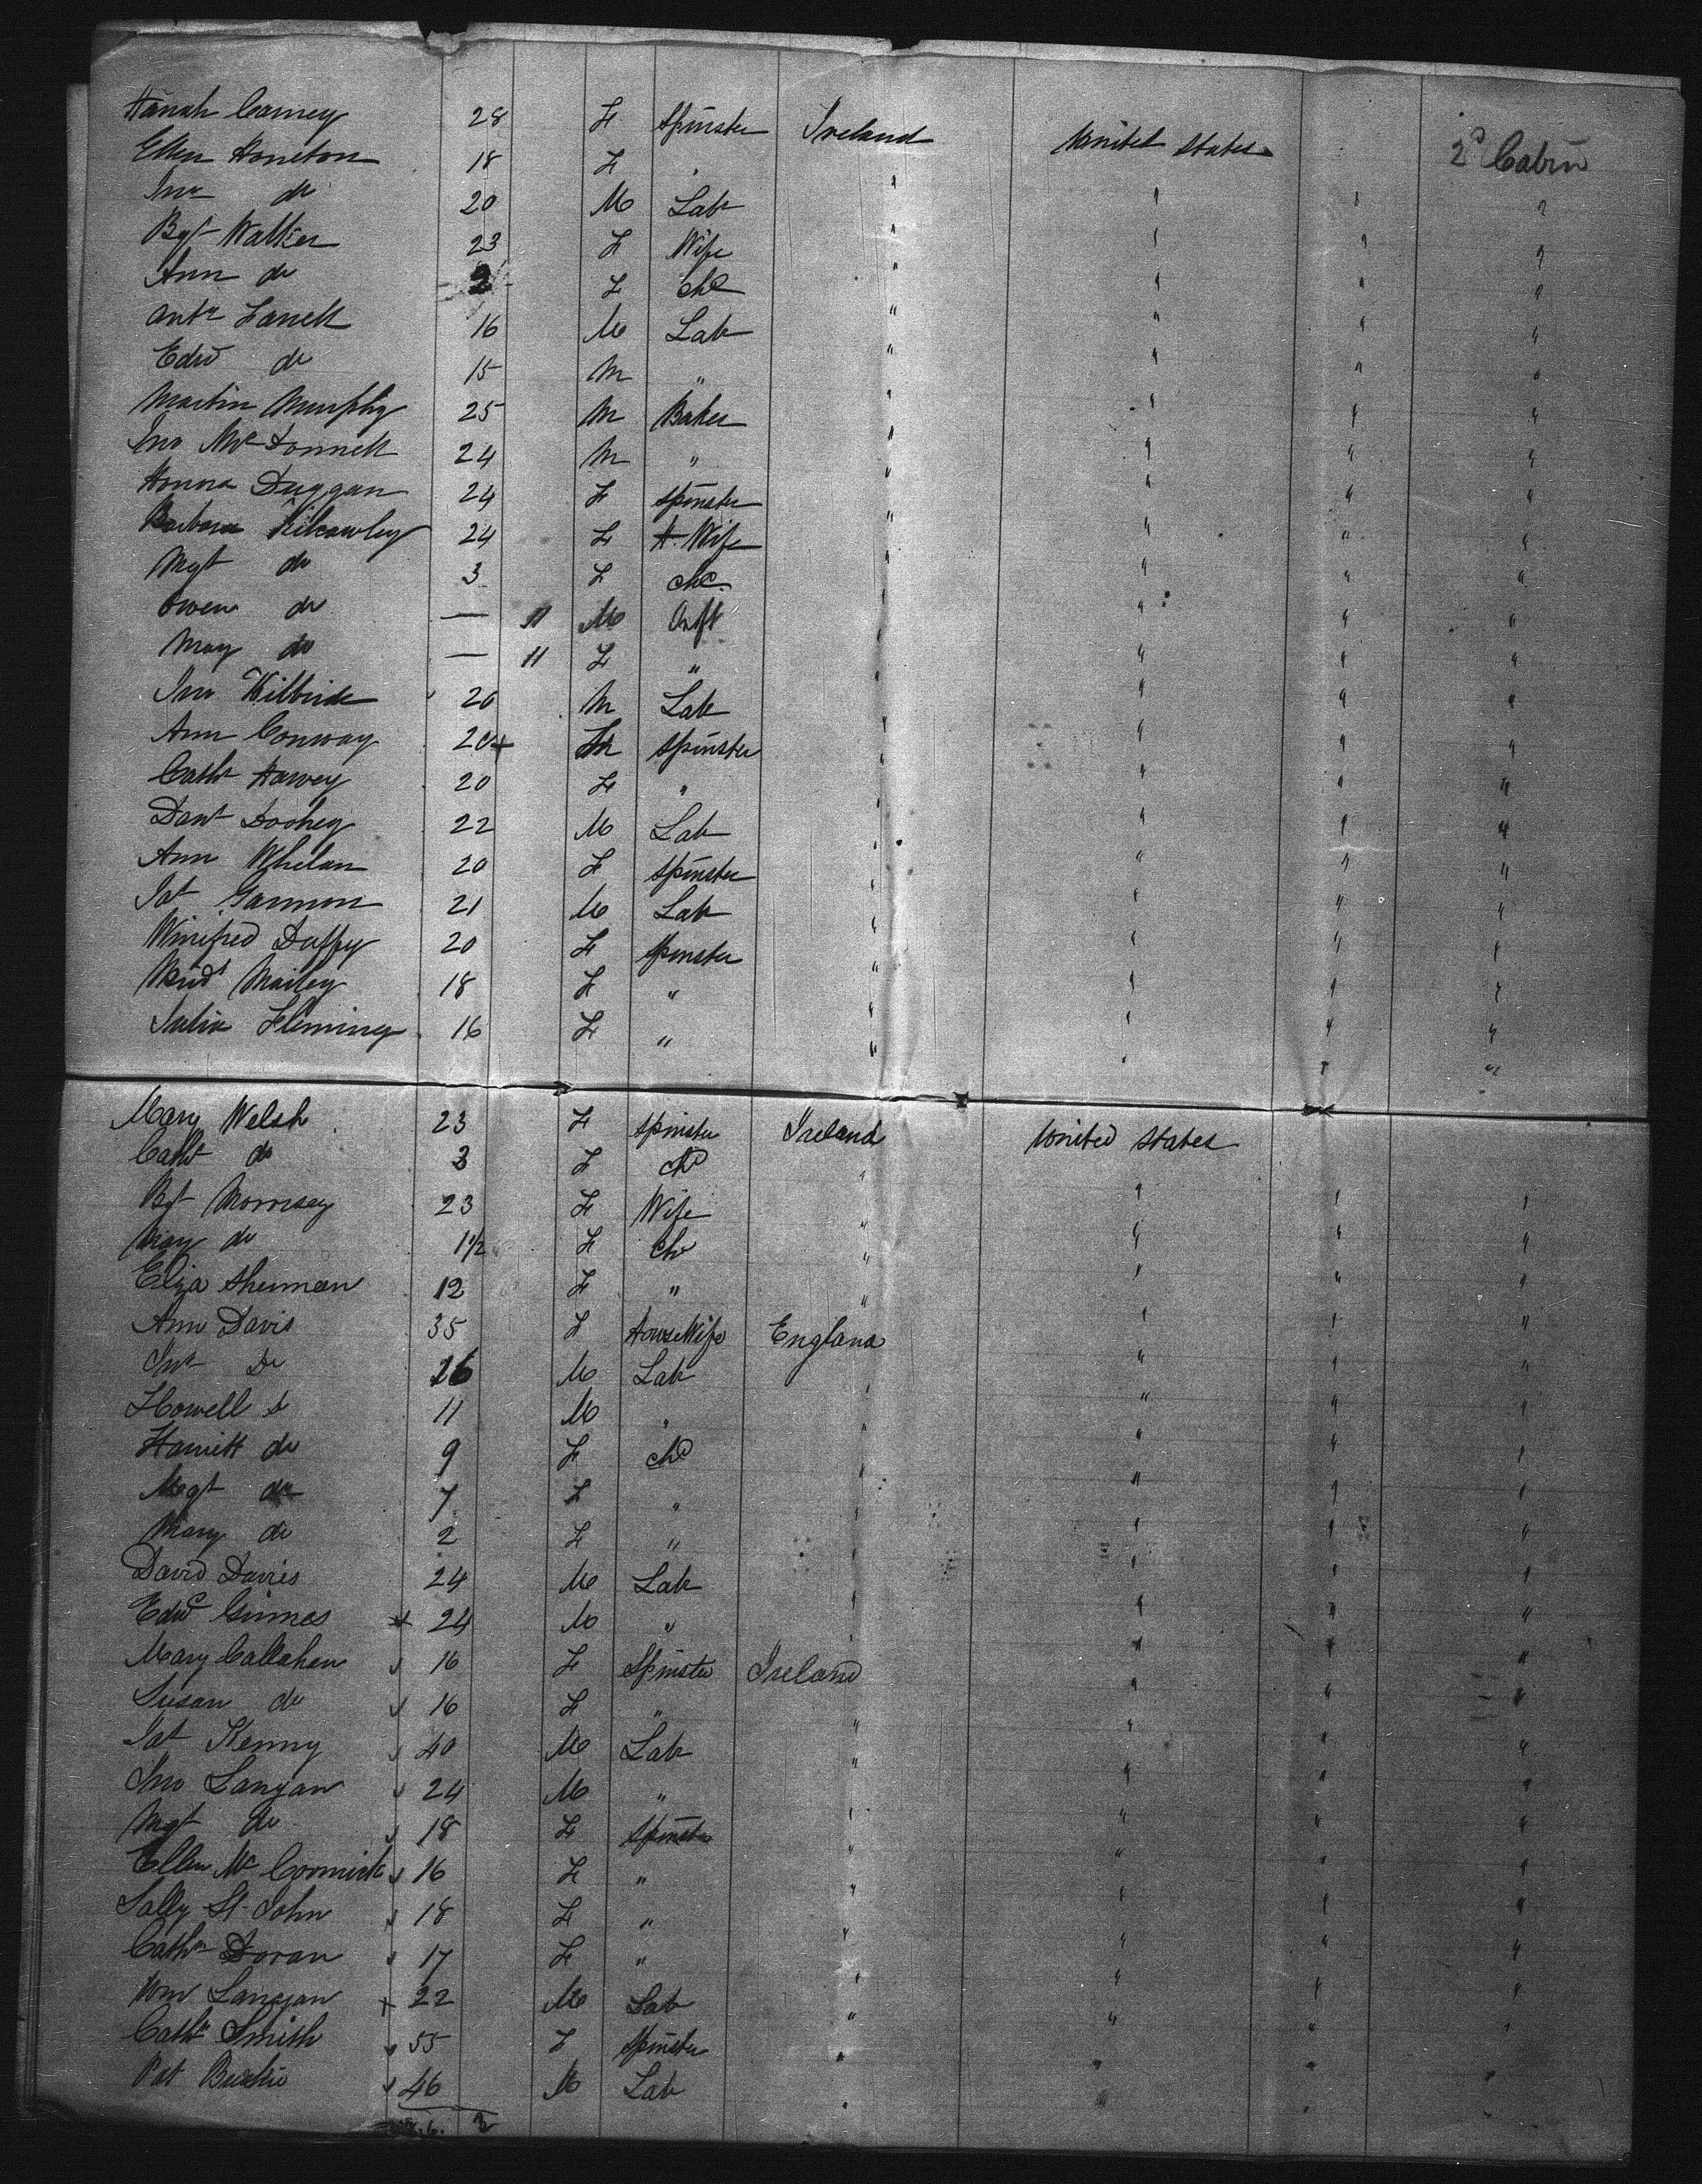 Hanah Carney 28 F Spinster Ireland United States 2d Cabin
Ellen Honeton 18 F " " " " "
Jno do 20 M Lab " " " "
Bgt Walker 23 F Wife " " " "
Ann do 2 F chd " " " "
Anty Farrell 16 M Lab " " " "
Edwd do 15 M " " " " "
Martin Murphy 25 M Baker " " " "
Jno McDonnell 24 M " " " " "
Honora Duggan 24 F Spinster " " " "
Barbara Kilcawley 24 F H. Wife " " " "
Mgt do 3 F chd " " " "
Owen do — 11 M Inft " " " "
May do — 11 F " " " " "
Jno Kilbride 20 M Lab " " " "
Ann Conway 20 Spinster " " " "
Cathe Harvey 20 F " " " " "
Danl Doohey 22 M Lab " " " "
Ann Whelan 20 F Spinster " " " "
Pat Gannon 21 M Lab " " " "
Winifred Duffy 20 F Spinster " " " "
Bridt Mailey 18 F " " " " "
Julia Fleming 16 F " " " " "
Mary Welsh 23 F Spinster Ireland United States
Catht do 3 F chd " " " "
Bgt Morrisey 23 F Wife " " " "
May do 1 1/2 F Chd " " " "
Eliza Sherman 12 F " " " " "
Ann Davis 35 F HouseWife England " " "
Jno Do 26 M Lab " " " "
Howell do 11 M " " " " "
Harriett do 9 F chd " " " "
Magt do 7 F " " " " "
Mary do 2 F " " " " "
David Davies 24 M Lab " " " "
Edwd Grimes 24 M " " " " "
Mary Callahan 16 F Spinster Ireland " " "
Susan do 16 F " " " " "
Pat Kenny 40 M Lab " " " "
Jno Langan 24 M " " " " "
Mgt do 18 F Spinster " " " "
Ellen McCormick 16 F " " " " "
Sally St John 18 F " " " " "
Cathe Doran 17 F " " " " "
Wm Langan 22 M Lab " " " "
Cathe Smith 55 F Spinster " " " "
Pat 46 M Lab " " " "